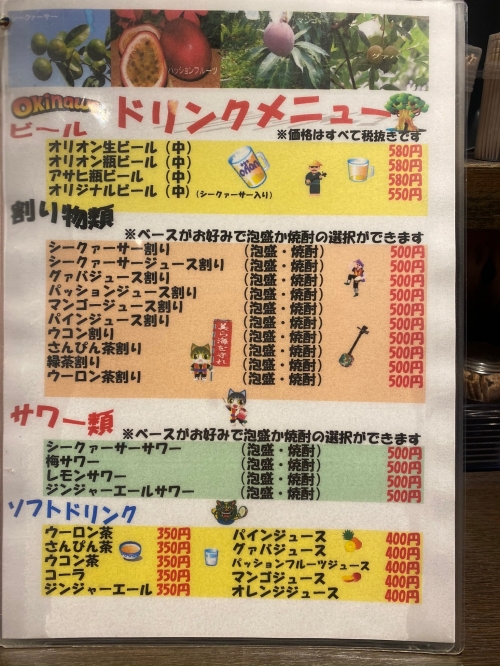 シークァーサー
パッションフルーツ
マンゴー
Okinawa ドリンクメニュー
ビール ※価格はすべて税抜きです
オリオン生ビール（中） 580円
オリオン瓶ビール（中） 580円
アサヒ瓶ビール（中） 580円
オリジナルビール（中）（シークァーサー入り） 550円
割り物類
※ベースがお好みで泡盛か焼酎の選択ができます
シークァーサー割り （泡盛・焼酎） 500円
シークァーサージュース割り （泡盛・焼酎） 500円
グァバジュース割り （泡盛・焼酎） 500円
パッションジュース割り （泡盛・焼酎） 500円
マンゴージュース割り （泡盛・焼酎） 500円
パインジュース割り （泡盛・焼酎） 500円
ウコン割り （泡盛・焼酎） 500円
さんぴん茶割り （泡盛・焼酎） 500円
緑茶割り （泡盛・焼酎） 500円
ウーロン茶割り （泡盛・焼酎） 500円
美ら海を守れ
サワー類
※ベースがお好みで泡盛か焼酎の選択ができます
シークァーサーサワー （泡盛・焼酎） 500円
梅サワー （泡盛・焼酎） 500円
レモンサワー （泡盛・焼酎） 500円
ジンジャーエールサワー （泡盛・焼酎） 500円
ソフトドリンク
ウーロン茶 350円
さんぴん茶 350円
ウコン茶 350円
コーラ 350円
ジンジャーエール 350円
パインジュース 400円
グァバジュース 400円
パッションフルーツジュース 400円
マンゴジュース 400円
オレンジジュース 400円